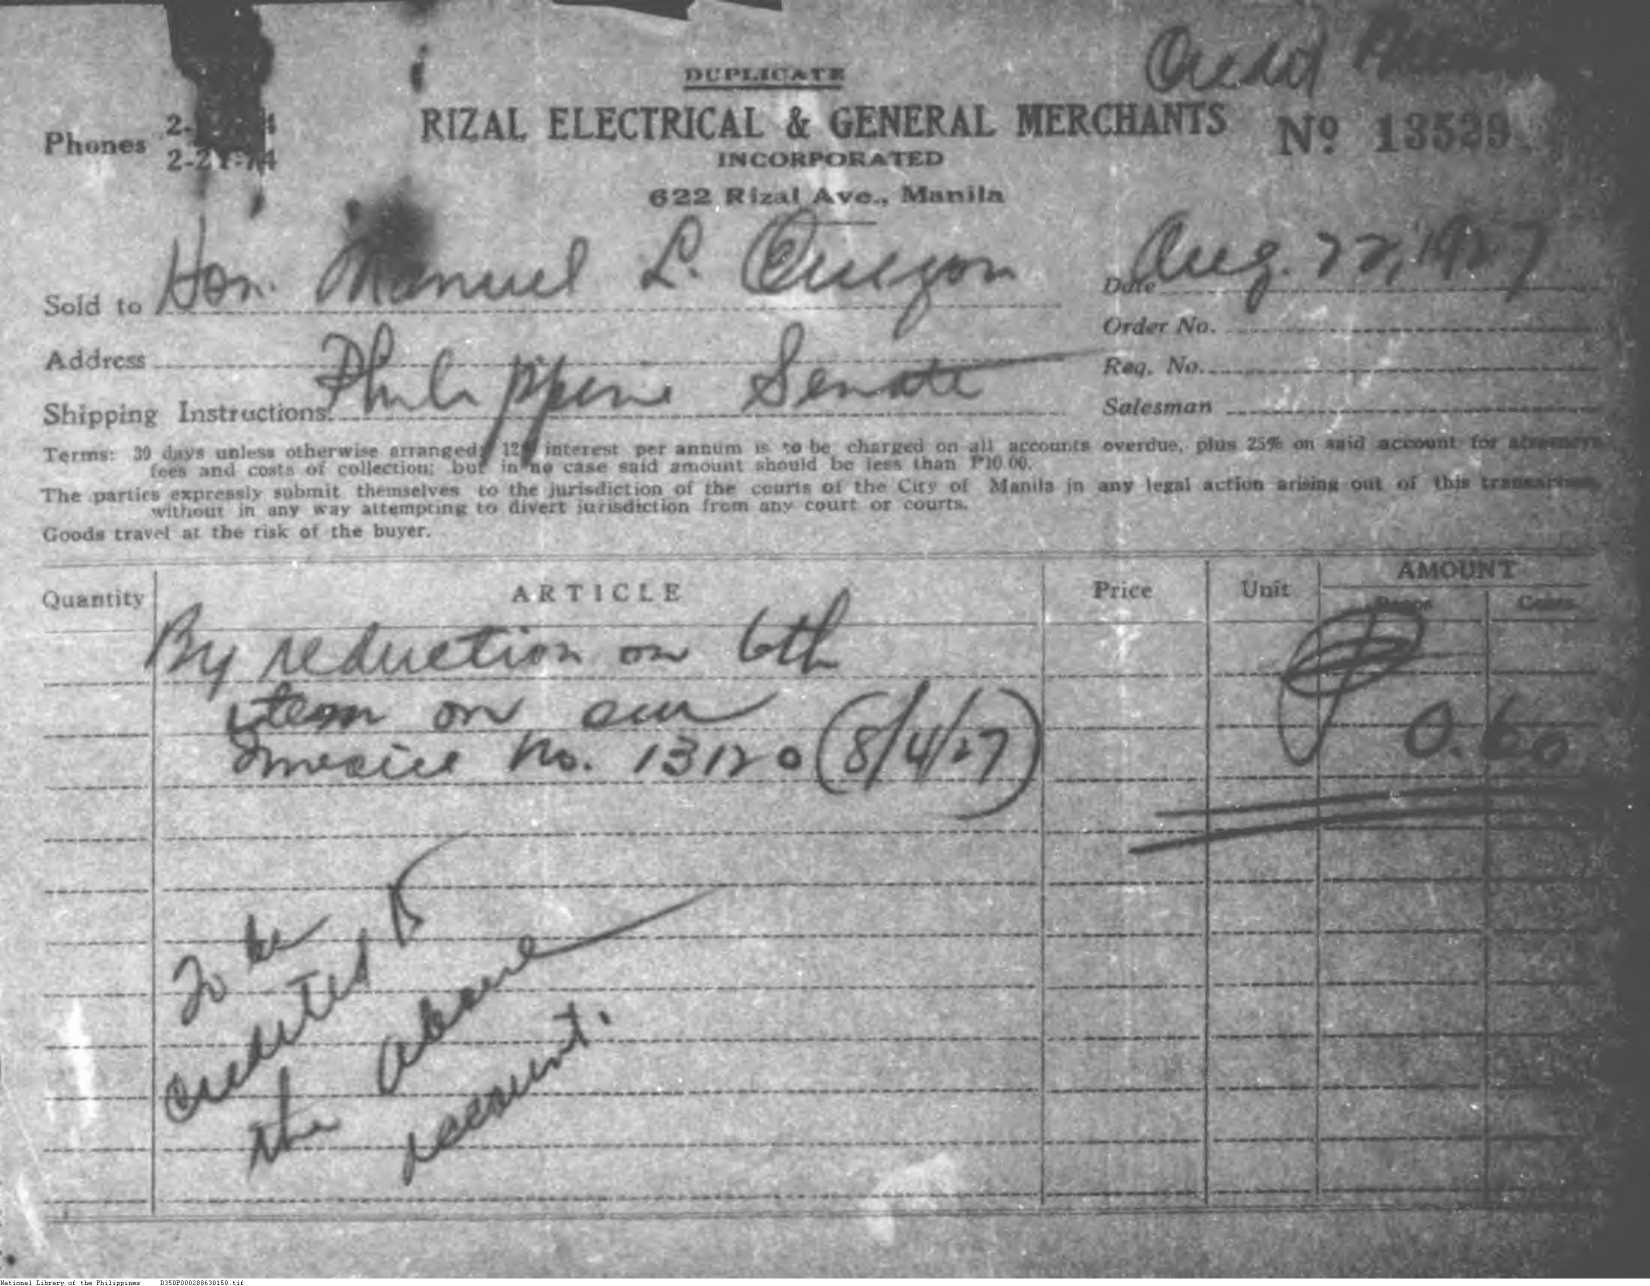 Credit
DUPLICATE
Phones 2-
RIZAL ELECTRICAL & GENERAL MERCHANTS
Nº 13539
INCORPORATED
622 Rizal Ave., Manila
Sold to Hon. Manuel L. Quezon
Date Aug. 22, 1927
Order No.
Address
Philippine Senate
Req. No.
Shipping Instructions:
Salesman
Terms: 30 days unless otherwise arranged; 12% interest per annum is to be charged on all accounts overdue, plus 25% on said account for attorneys
fees and costs of collection; but in no case said amount should be less than ₱10.00.
The parties expressly submit themselves to the jurisdiction of the courts of the City of Manila in any legal action arising out of this transaction,
without in any way attempting to divert jurisdiction from any court or courts.
Goods travel at the risk of the buyer.
Quantity ARTICLE Price Unit AMOUNT
Pesos Cents
By reduction on 6th
item on our
Invoice No. 13120 (8/4/27) ₱ 0.60
To be
credited to
the above
account.
National Library of the Philippines D350P000288630150.tif